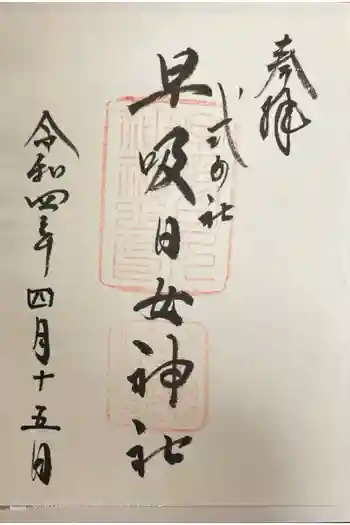 奉拝
式内社
早吸日女神社
令和四年四月十五日